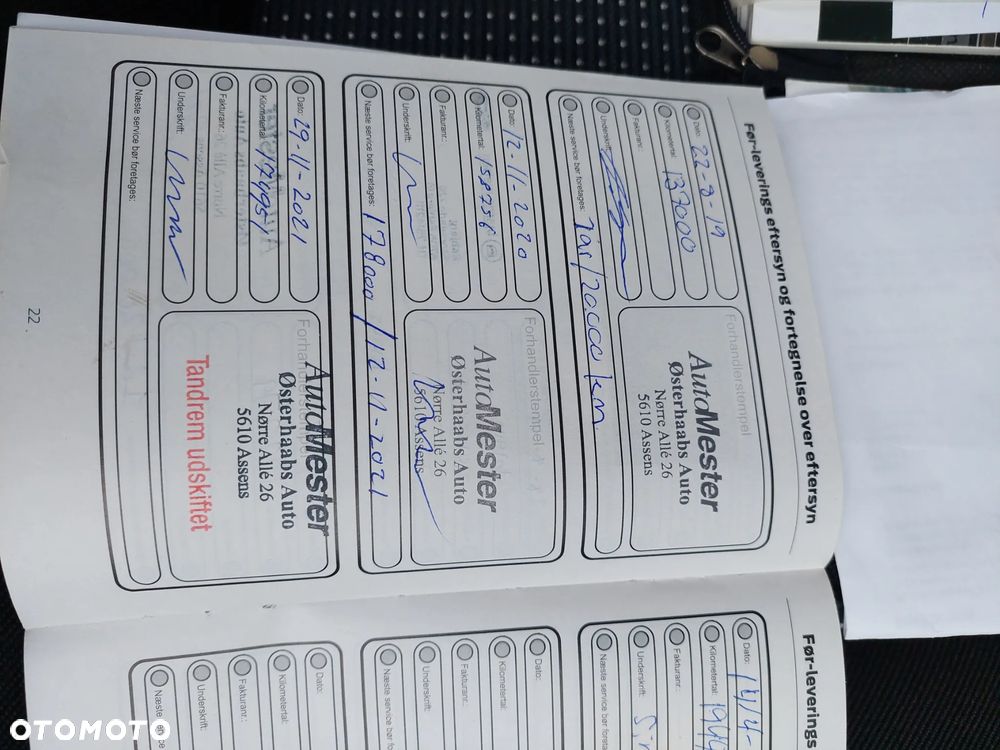 Før-leverings eftersyn og fortegnelse over eftersyn
Dato: 22-8-19
Kilometertal: 137000
Fakturanr.:
Underskrift:
Næste service bør foretages: 1år/20.000 km
Forhandlerstempel
AutoMester
Østerhaabs Auto
Nørre Allé 26
5610 Assens
Dato: 12-11-2020
Kilometertal: 158756 (m)
Fakturanr.:
Underskrift:
Næste service bør foretages: 178000 / 12-11-2021
Forhandlerstempel
AutoMester
Østerhaabs Auto
Nørre Allé 26
5610 Assens
Dato: 29-11-2021
Kilometertal: 174951
Fakturanr.:
Underskrift:
Næste service bør foretages:
Forhandlerstempel
AutoMester
Østerhaabs Auto
Nørre Allé 26
5610 Assens
Tandrem udskiftet
22.
Før-leverings
Dato: 14/4-
Kilometertal: 1944
Fakturanr.:
Underskrift:
Næste service bør foreta
Dato:
Kilometertal:
Fakturanr.:
Underskrift:
Næste service bø
Dato:
Kilometertal:
Fakturanr.:
Underskrift:
Næste
OTOMOTO